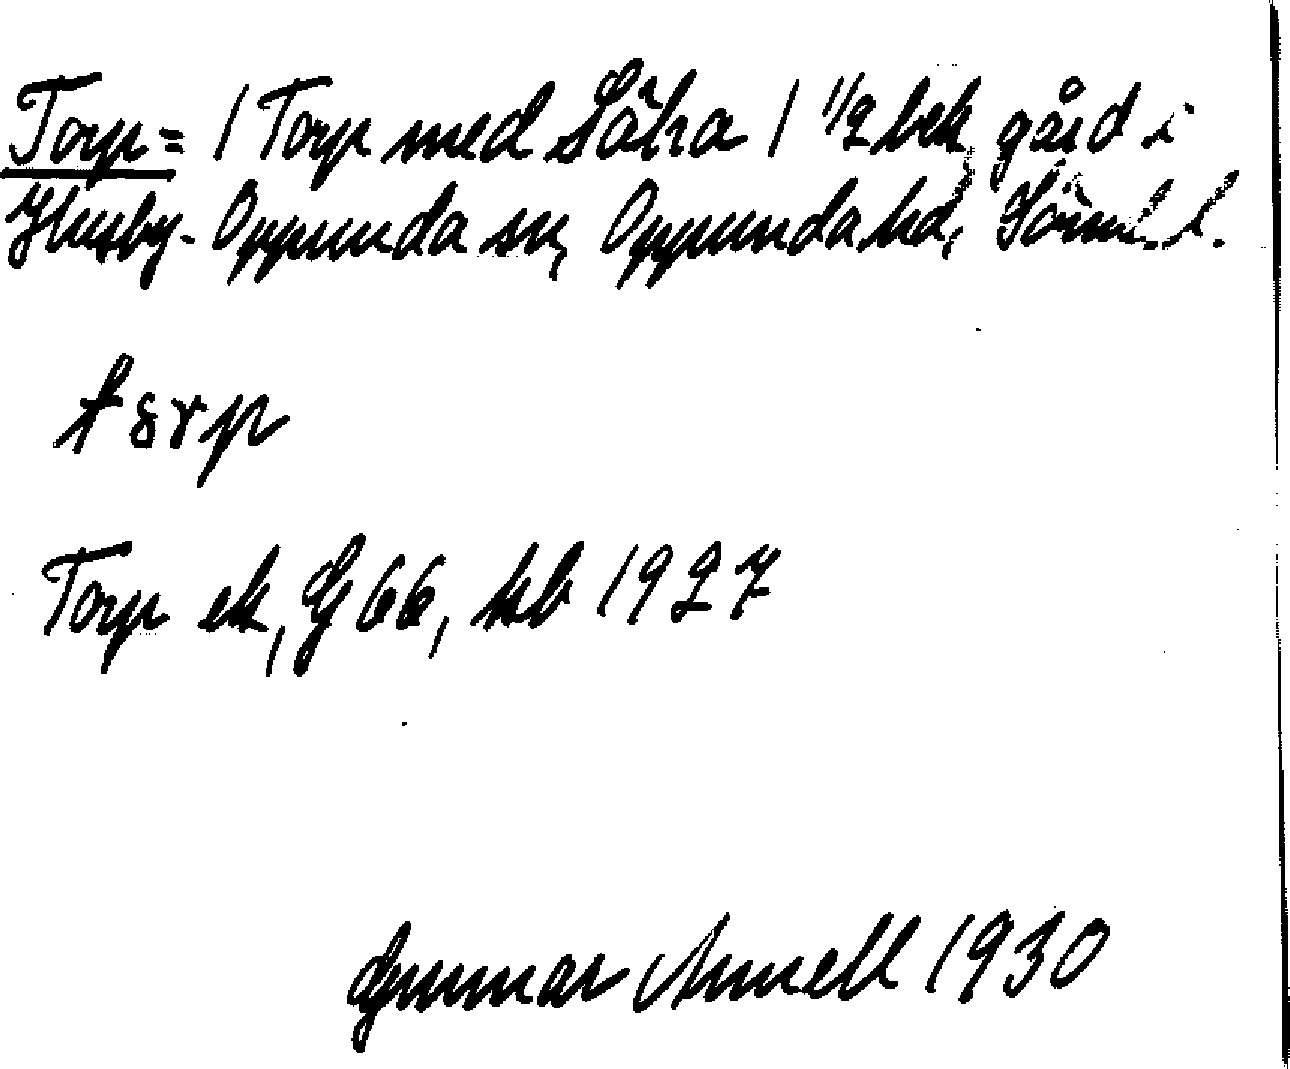 Torp = / Torp med Sätra / 1/2 bek, gård i
Husby-Oppunda sn, Oppunda hd, Sörml. l.
tɷrp
Torp ek, G 66, kb 1927
Gunnar Arnell 1930